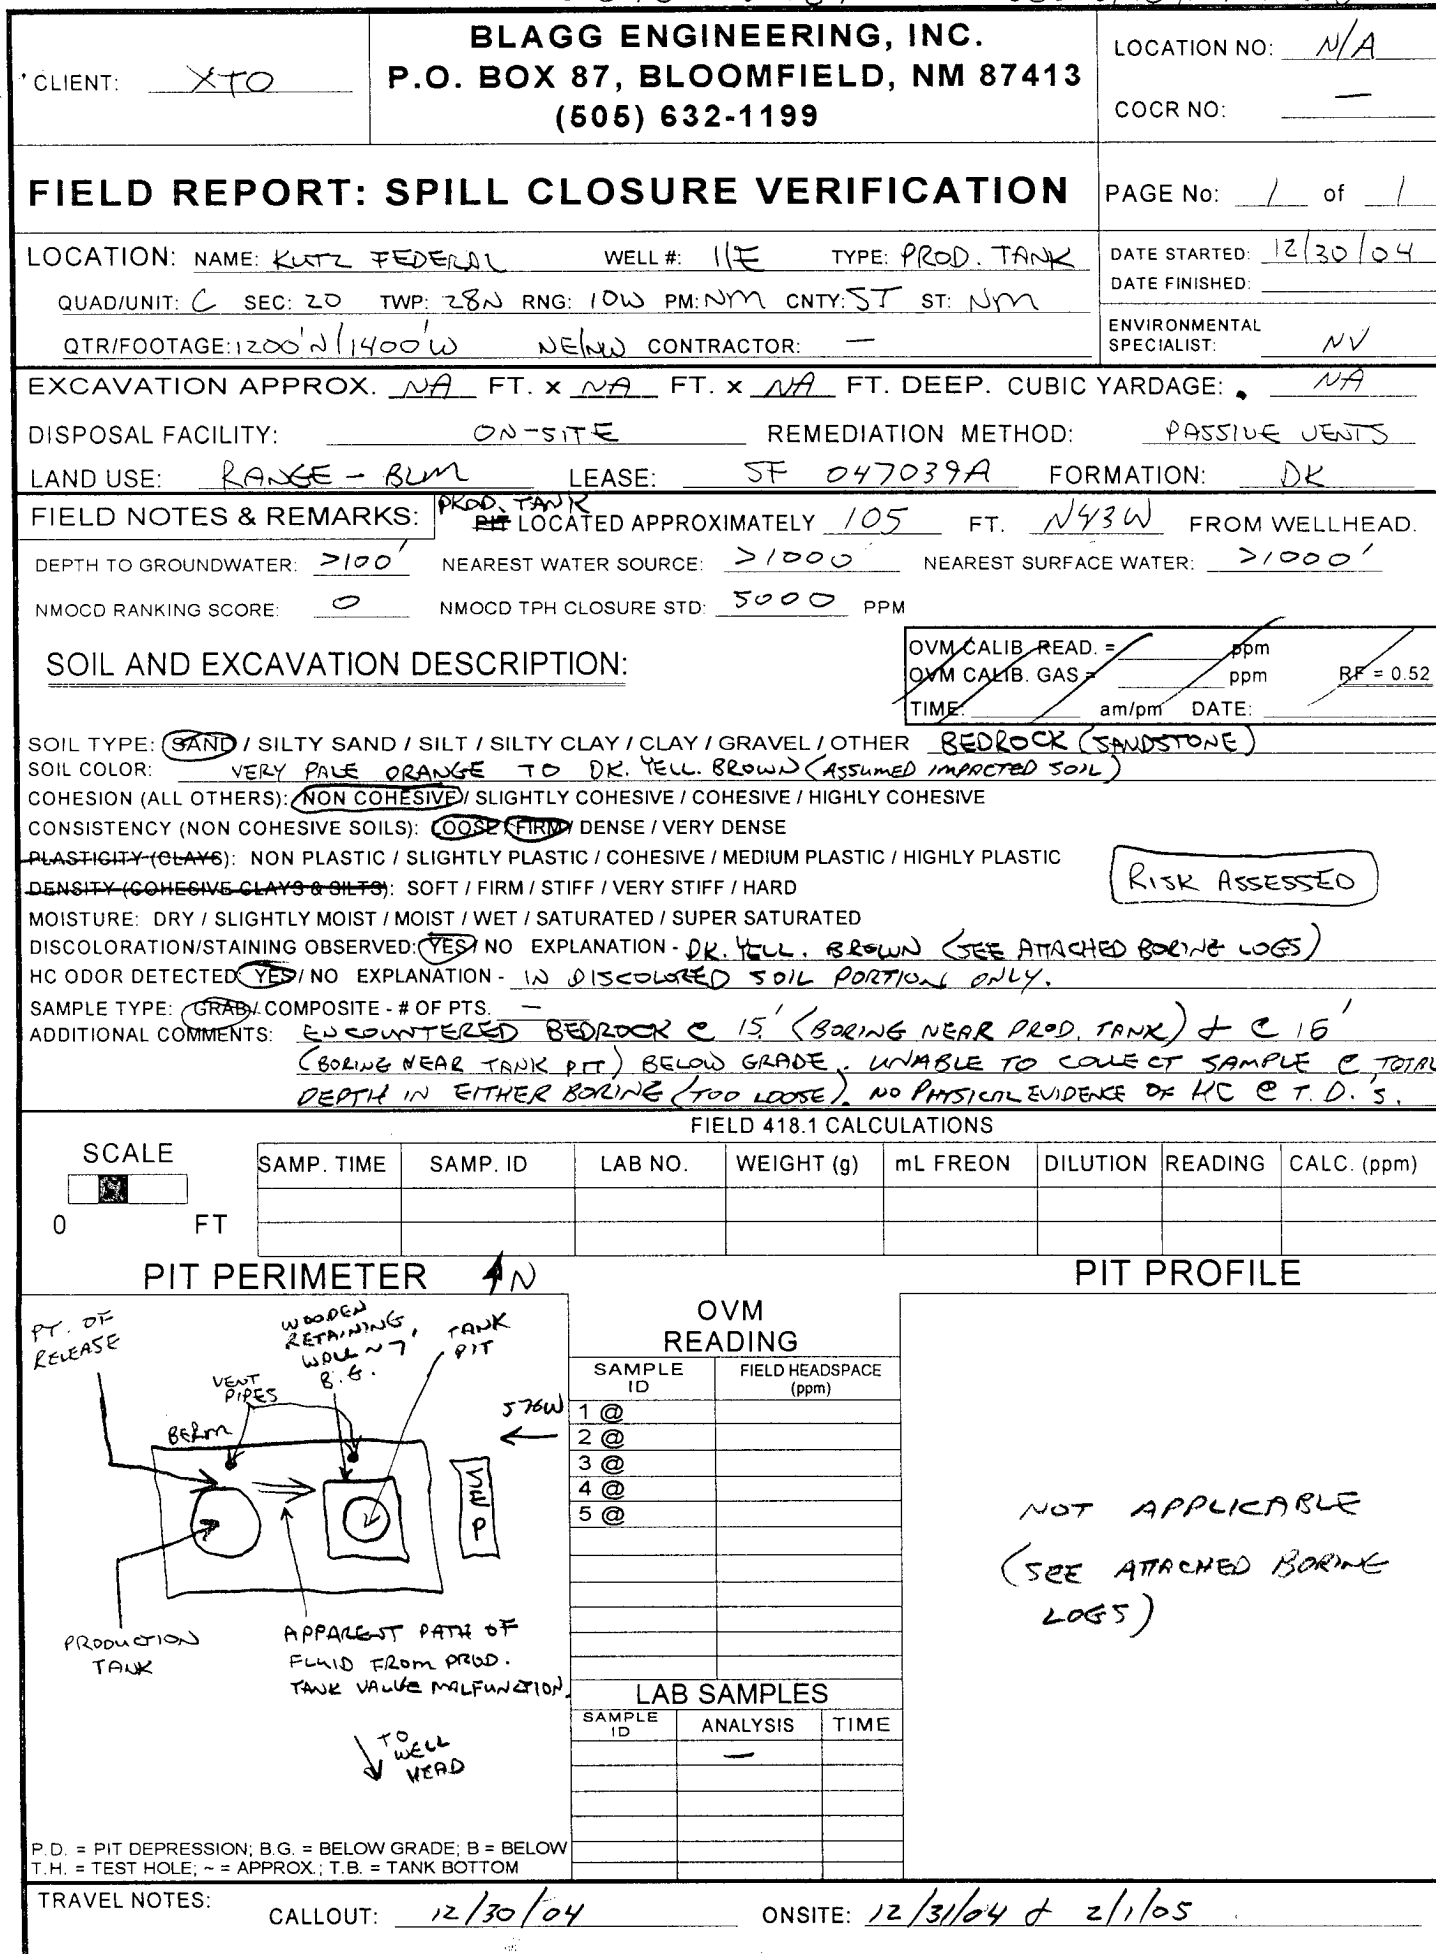 BLAGG ENGINEERING, INC.
P.O. BOX 87, BLOOMFIELD, NM 87413
(505) 632-1199
CLIENT: XTO
LOCATION NO: N/A
COCR NO: —
FIELD REPORT: SPILL CLOSURE VERIFICATION
PAGE No: 1 of 1
LOCATION: NAME: KUTZ FEDERAL WELL #: 11E TYPE: PROD. TANK
QUAD/UNIT: C SEC: 20 TWP: 28N RNG: 10W PM: NM CNTY: ST ST: NM
QTR/FOOTAGE: 1200'N/1400'W NE/NW CONTRACTOR: —
DATE STARTED: 12/30/04
DATE FINISHED:
ENVIRONMENTAL
SPECIALIST: NV
EXCAVATION APPROX. NA FT. x NA FT. x NA FT. DEEP. CUBIC YARDAGE: NA
DISPOSAL FACILITY: ON-SITE REMEDIATION METHOD: PASSIVE VENTS
LAND USE: RANGE - BLM LEASE: SF 047039A FORMATION: DK
PROD. TANK
FIELD NOTES & REMARKS: PIT LOCATED APPROXIMATELY 105 FT. N43W FROM WELLHEAD.
DEPTH TO GROUNDWATER: >100' NEAREST WATER SOURCE: >1000' NEAREST SURFACE WATER: >1000'
NMOCD RANKING SCORE: 0 NMOCD TPH CLOSURE STD: 5000 PPM
SOIL AND EXCAVATION DESCRIPTION:
OVM CALIB. READ. = ppm
OVM CALIB. GAS = ppm RF = 0.52
TIME: am/pm DATE:
SOIL TYPE: SAND / SILTY SAND / SILT / SILTY CLAY / CLAY / GRAVEL / OTHER BEDROCK (SANDSTONE)
SOIL COLOR: VERY PALE ORANGE TO DK. YELL. BROWN (ASSUMED IMPACTED SOIL)
COHESION (ALL OTHERS): NON COHESIVE / SLIGHTLY COHESIVE / COHESIVE / HIGHLY COHESIVE
CONSISTENCY (NON COHESIVE SOILS): LOOSE / FIRM / DENSE / VERY DENSE
PLASTICITY (CLAYS): NON PLASTIC / SLIGHTLY PLASTIC / COHESIVE / MEDIUM PLASTIC / HIGHLY PLASTIC
DENSITY (COHESIVE CLAYS & SILTS): SOFT / FIRM / STIFF / VERY STIFF / HARD
RISK ASSESSED
MOISTURE: DRY / SLIGHTLY MOIST / MOIST / WET / SATURATED / SUPER SATURATED
DISCOLORATION/STAINING OBSERVED: YES / NO EXPLANATION - DK. YELL. BROWN (SEE ATTACHED BORING LOGS)
HC ODOR DETECTED: YES / NO EXPLANATION - IN DISCOLORED SOIL PORTION ONLY.
SAMPLE TYPE: GRAB / COMPOSITE - # OF PTS. —
ADDITIONAL COMMENTS: ENCOUNTERED BEDROCK @ 15' (BORING NEAR PROD. TANK) & @ 16'
(BORING NEAR TANK PIT) BELOW GRADE. UNABLE TO COLLECT SAMPLE @ TOTAL
DEPTH IN EITHER BORING (TOO LOOSE). NO PHYSICAL EVIDENCE OF HC @ T.D.'s.
FIELD 418.1 CALCULATIONS
SCALE
0 FT
SAMP. TIME SAMP. ID LAB NO. WEIGHT (g) mL FREON DILUTION READING CALC. (ppm)
PIT PERIMETER N
PT. OF
RELEASE
WOODEN
RETAINING
WALL ~ 7'
B.G.
TANK
PIT
VENT
PIPES
BERM
S76W
PRODUCTION
TANK
APPARENT PATH OF
FLUID FROM PROD.
TANK VALVE MALFUNCTION.
TO
WELL
HEAD
P.D. = PIT DEPRESSION; B.G. = BELOW GRADE; B = BELOW
T.H. = TEST HOLE; ~ = APPROX.; T.B. = TANK BOTTOM
OVM
READING
SAMPLE
ID
FIELD HEADSPACE
(ppm)
1 @
2 @
3 @
4 @
5 @
LAB SAMPLES
SAMPLE
ID
ANALYSIS TIME
—
PIT PROFILE
NOT APPLICABLE
(SEE ATTACHED BORING
LOGS)
TRAVEL NOTES: CALLOUT: 12/30/04 ONSITE: 12/31/04 & 2/1/05